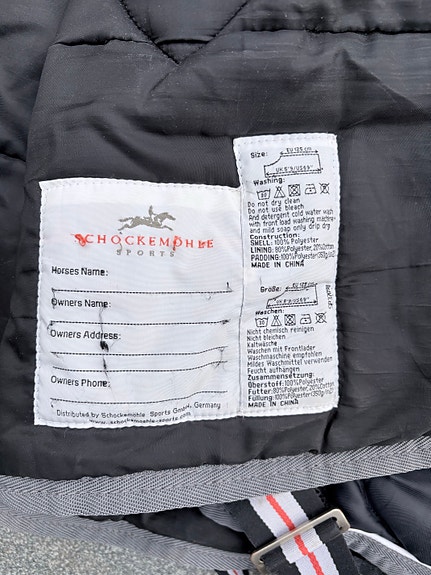 SCHOCKEMÖHLE
SPORTS
Horses Name:
Owners Name:
Owners Address:
Owners Phone:
Distributed by Schockemöhle Sports GmbH, Germany
www.schockemohle-sports.com
Size: EU 125 cm
UK 5'9/US69"
Washing:
30
Do not dry clean
Do not use bleach
And detergent cold water wash
with front load washing machine
and mild soap only drip dry
Construction:
SHELL: 100%Polyester
LINING: 80%Polyester, 20%Cotton
PADDING: 100%Polyester(350g/m2)
MADE IN CHINA
Größe:
Waschen:
30
Nicht chemisch reinigen
Nicht bleichen
Kaltwäsche
Waschen mit Frontlader
Waschmaschine empfohlen
Mildes Waschmittel verwenden
Feucht aufhängen
Zusammensetzung:
Oberstoff:100%Polyester
Futter:80%Polyester, 20%Cotton
Füllung:100%Polyester(350g/m2)
MADE IN CHINA